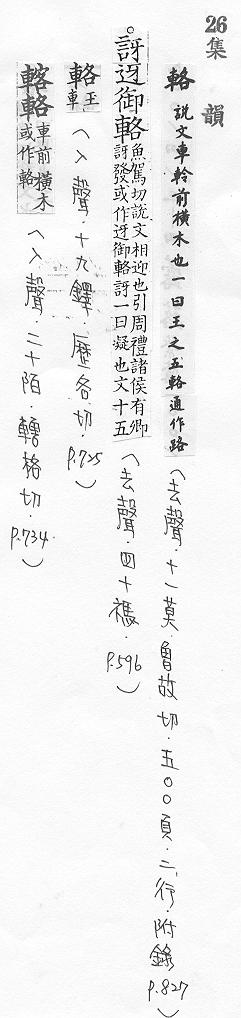 26
集韻
輅 說文車軨前橫木也一曰王之五輅通作路（去聲．十一莫．魯故切．五００頁．二行．附錄P.827）
。訝迓御輅 魚駕切說文相迎也引周禮諸侯有卿訝發或作迓御輅訝一曰疑也文十五（去聲．四十禡．P.596）
輅 王車（入聲．十九鐸．歷各切．P.725）
輅 車前橫木或作輅（入聲．二十陌．轄格切．P.734．）